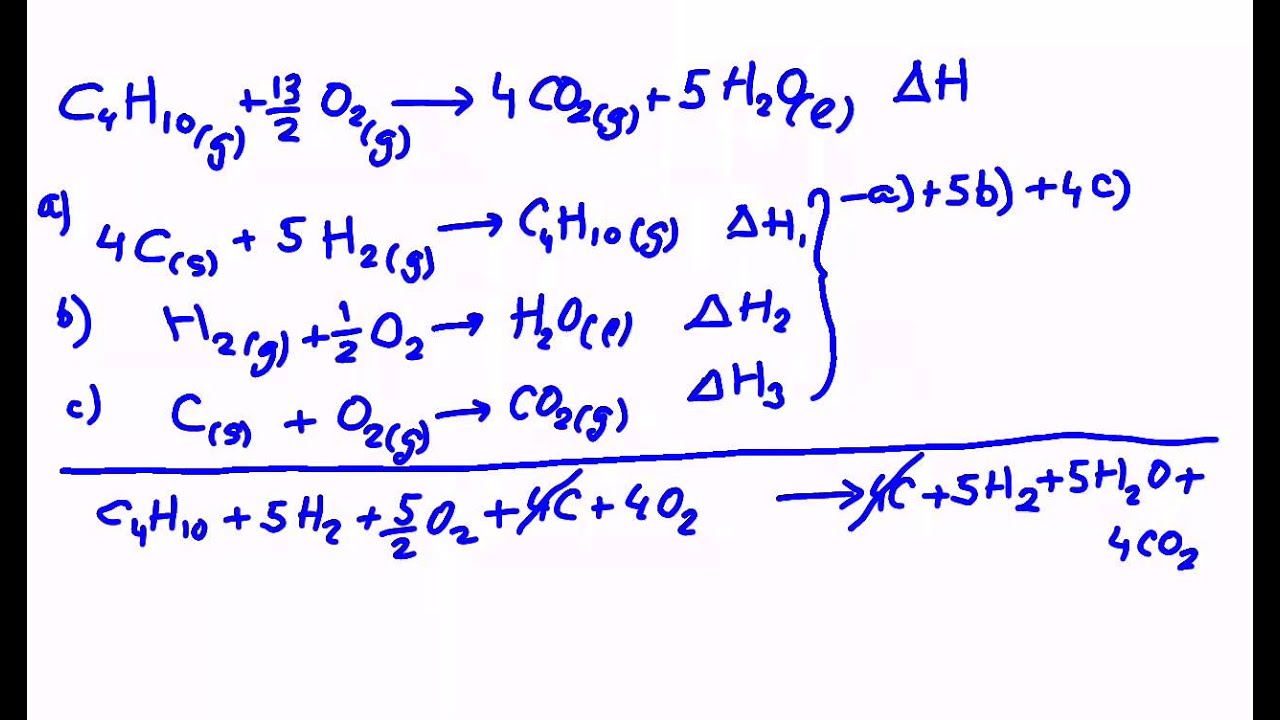 C₄H₁₀(g) + 13/2 O₂(g) → 4CO₂(g) + 5H₂O(l) ΔH
a) 4C(s) + 5H₂(g) → C₄H₁₀(g) ΔH₁ } -a) + 5b) + 4c)
b) H₂(g) + 1/2 O₂ → H₂O(l) ΔH₂
c) C(s) + O₂(g) → CO₂(g) ΔH₃
C₄H₁₀ + 5H₂ + 5/2 O₂ + 4C + 4O₂ → 4C + 5H₂ + 5H₂O +
4CO₂